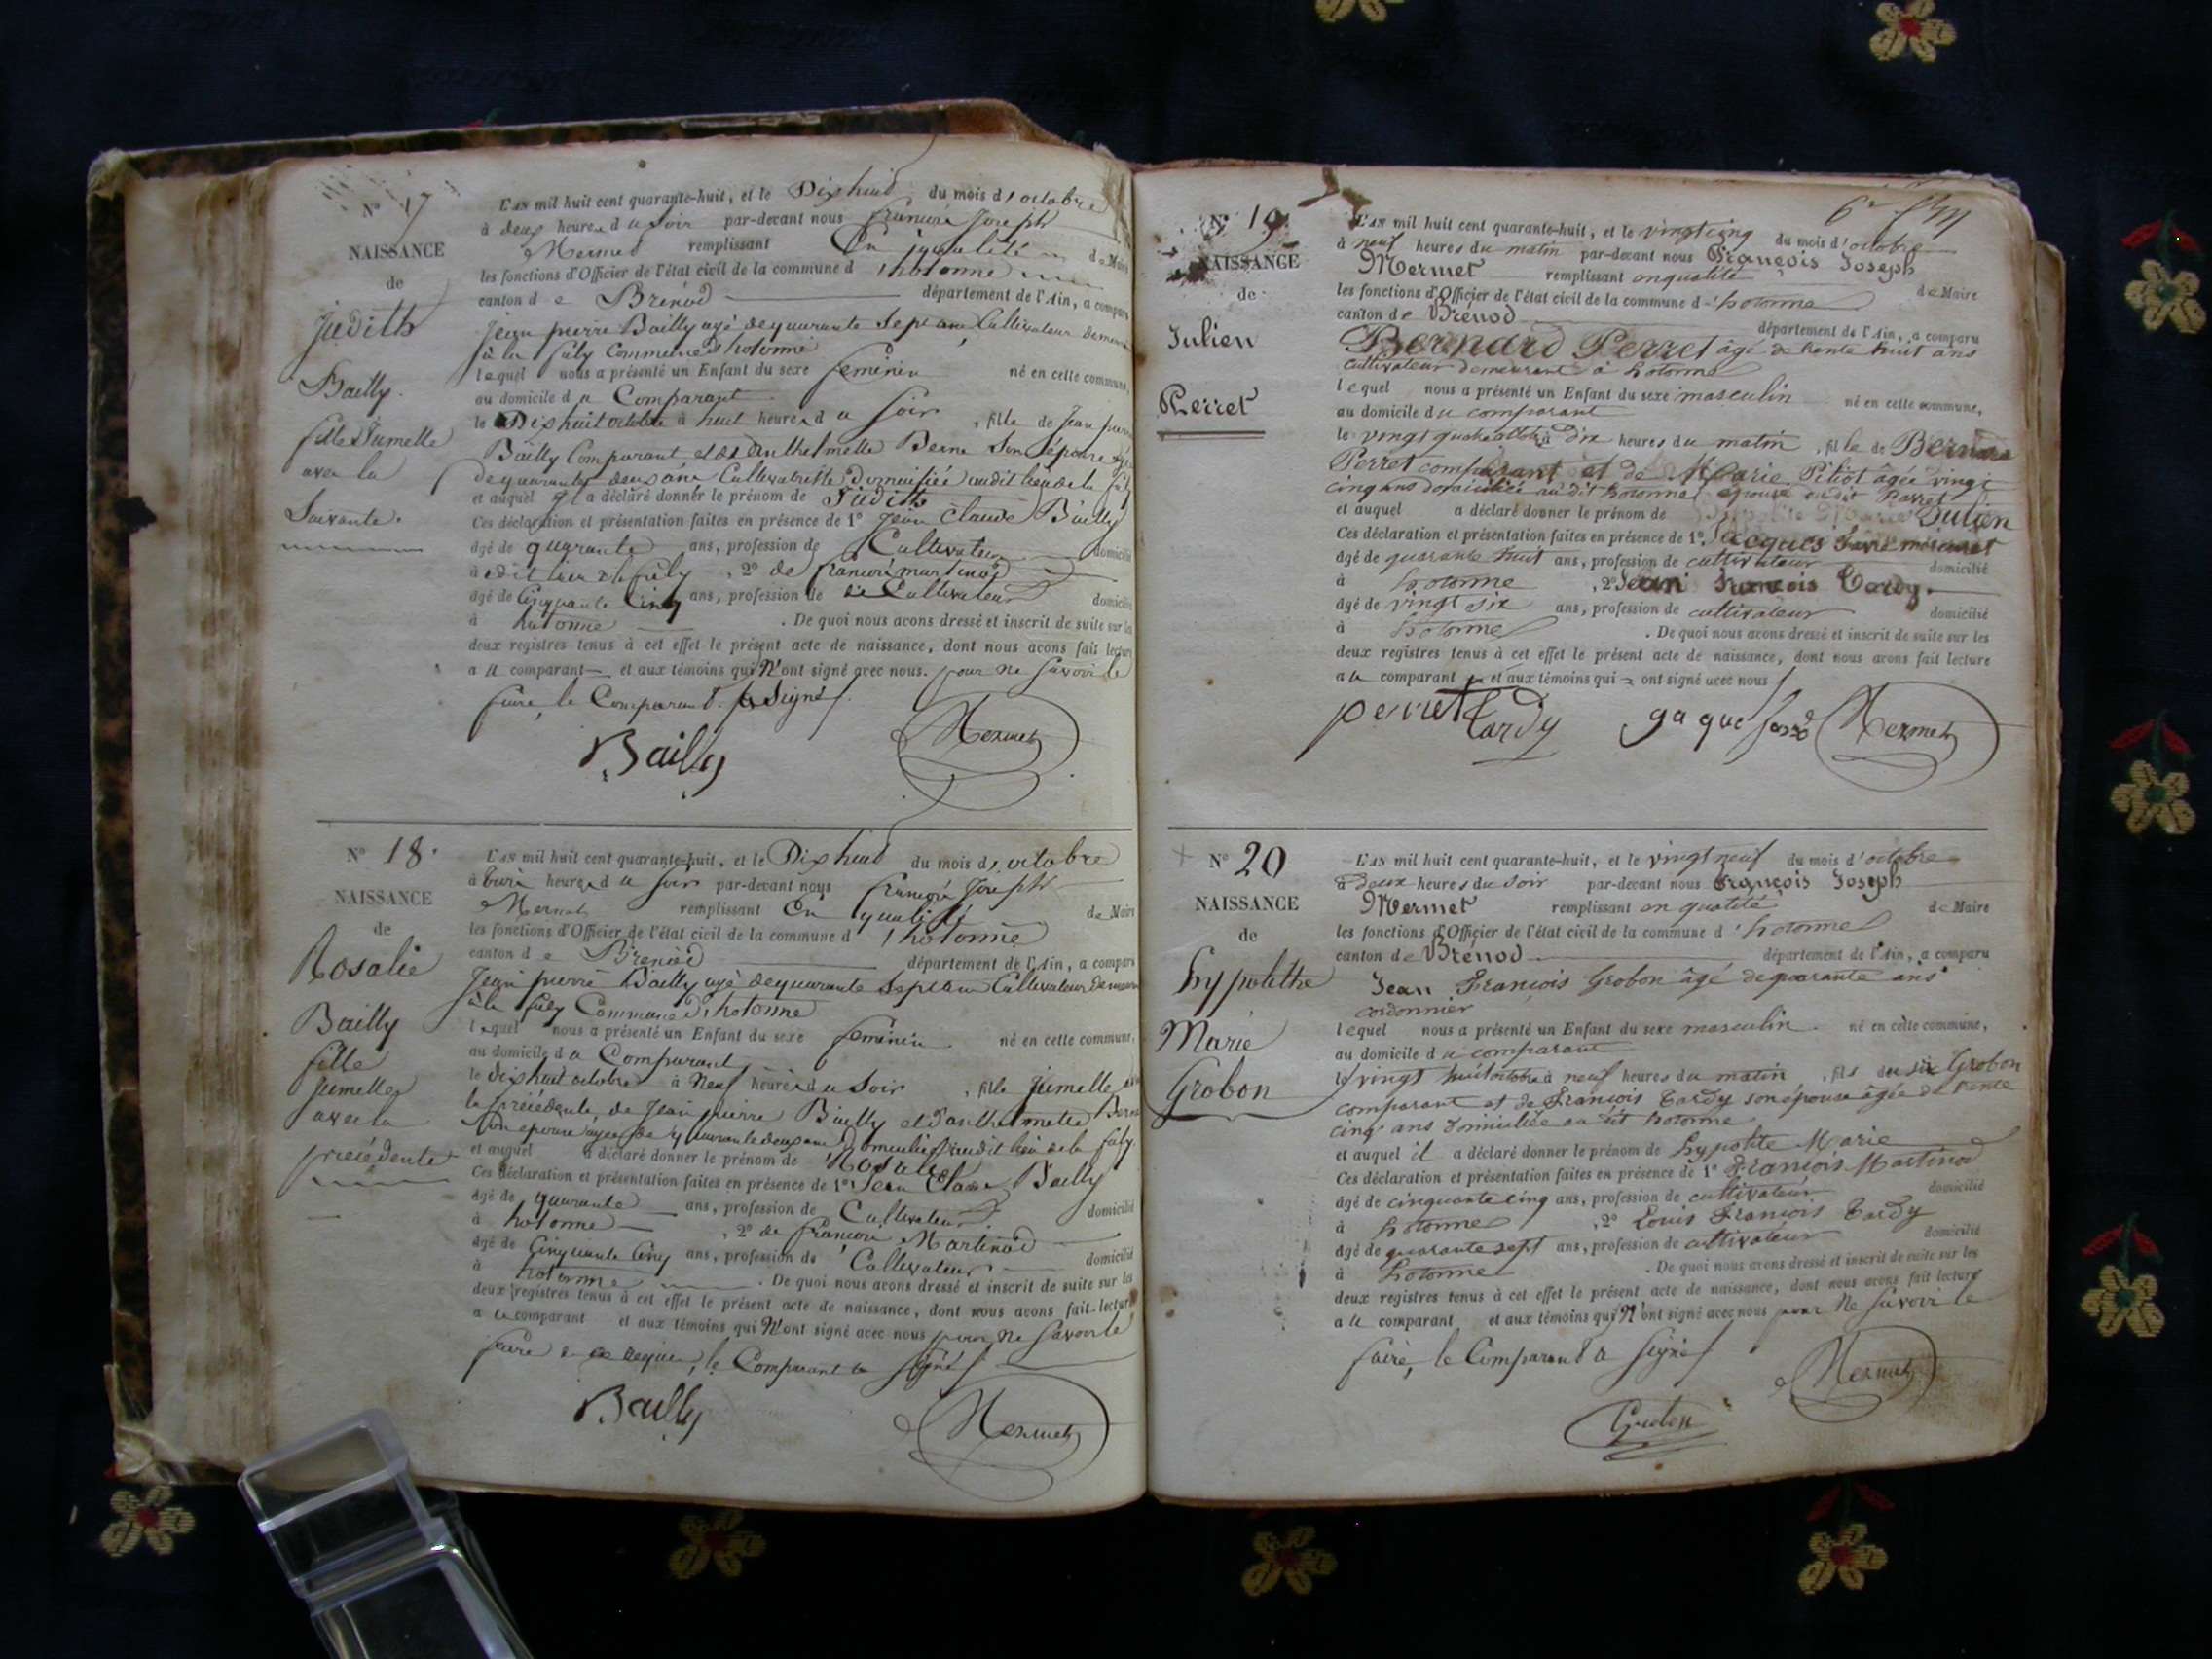 N° 17
NAISSANCE
de
Judith
Bailly.
fille Jumelle
avec la
Suivante.
L'AN mil huit cent quarante-huit, et le Dix huit du mois d'octobre
à deux heures du Soir par-devant nous françois Joseph
Mermet remplissant En qualité de Maire
les fonctions d'Officier de l'état civil de la commune d'hotonne
canton de Brénod département de l'Ain, a comparu
Jean pierre Bailly agé de quarante Sept ans Cultivateur demeurant
à la fuly Commune d'hotonne
lequel nous a présenté un Enfant du sexe feminin né en cette commune,
au domicile du Comparant
le Dix huit octobre à huit heures du Soir, fille de Jean pierre
Bailly Comparant et de Anthelmette Berne Son épouse
de quarante deux ans Cultivatrice Domiciliée audit lieu de la fuly
et auquel il a déclaré donner le prénom de Judith
Ces déclaration et présentation faites en présence de 1° Jean Claude Bailly
âgé de quarante ans, profession de Cultivateur domicilié
à dit lieu de la fuly, 2° de françois martinod
âgé de Cinquante Cinq ans, profession de Cultivateur domicilié
à hotonne. De quoi nous avons dressé et inscrit de suite sur les
deux registres tenus à cet effet le présent acte de naissance, dont nous avons fait lecture
au comparant et aux témoins qui N'ont signé avec nous. pour ne Savoir le
faire, le Comparant a Signé.
Bailly Mermet
N° 18.
NAISSANCE
de
Rosalie
Bailly
fille
Jumelle
avec la
précédente
L'AN mil huit cent quarante-huit, et le Dix huit du mois d'octobre
à trois heures du Soir par-devant nous françois Joseph
Mermet remplissant En qualité de Maire
les fonctions d'Officier de l'état civil de la commune d'hotonne
canton de Brénod département de l'Ain, a comparu
Jean pierre Bailly agé de quarante Sept ans Cultivateur Demeurant
à la fuly Commune d'hotonne
lequel nous a présenté un Enfant du sexe feminin né en cette commune,
au domicile du Comparant
le dix huit octobre à Neuf heures du Soir, fille Jumelle
la précédente, de Jean pierre Bailly et d'anthelmette Berne
Son epouse agée de quarante deux ans Domiciliée audit lieu de la fuly.
et auquel a déclaré donner le prénom de Rosalie
Ces déclaration et présentation faites en présence de 1° Jean Claude Bailly
âgé de quarante ans, profession de Cultivateur domicilié
à hotonne, 2° de françois Martinod
âgé de Cinquante Cinq ans, profession de Cultivateur domicilié
à hotonne. De quoi nous avons dressé et inscrit de suite sur les
deux registres tenus à cet effet le présent acte de naissance, dont nous avons fait lecture
au comparant et aux témoins qui N'ont signé avec nous pour Ne Savoir le
faire de ce requis, le Comparant a Signé
Bailly Mermet
N° 19.
NAISSANCE
de
Julien
Perret
L'AN mil huit cent quarante-huit, et le vingt cinq du mois d'octobre
à neuf heures du matin par-devant nous François Joseph
Mermet remplissant en qualité de Maire
les fonctions d'Officier de l'état civil de la commune d'hotonne
canton de Brénod département de l'Ain, a comparu
Bernard Perret âgé de trente huit ans
cultivateur demeurant à hotonne
lequel nous a présenté un Enfant du sexe masculin né en cette commune,
au domicile du comparant
le vingt quatre octobre à dix heures du matin, fils de Bernard
Perret comparant et de Marie Pitiot âgée vingt
cinq ans domiciliée au dit hotonne épouse dudit Perret
et auquel a déclaré donner le prénom de Julien
Ces déclaration et présentation faites en présence de 1° Jacques
âgé de quarante huit ans, profession de cultivateur domicilié
à hotonne, 2° Jean François Tardy.
âgé de vingt six ans, profession de cultivateur domicilié
à hotonne. De quoi nous avons dressé et inscrit de suite sur les
deux registres tenus à cet effet le présent acte de naissance, dont nous avons fait lecture
au comparant et aux témoins qui ont signé avec nous
perret Tardy gaque Mermet
N° 20
NAISSANCE
de
hypolithe
Marie
Grobon
L'AN mil huit cent quarante-huit, et le vingt neuf du mois d'octobre
à deux heures du soir par-devant nous François Joseph
Mermet remplissant en qualité de Maire
les fonctions d'Officier de l'état civil de la commune d'hotonne
canton de Brénod département de l'Ain, a comparu
Jean François Grobon âgé de quarante ans
cordonnier
lequel nous a présenté un Enfant du sexe masculin né en cette commune,
au domicile du comparant
le vingt huit octobre à neuf heures du matin, fils du six Grobon
comparant et de François Tardy son épouse âgée de trente
cinq ans domiciliée au dit hotonne
et auquel il a déclaré donner le prénom de hypolite Marie
Ces déclaration et présentation faites en présence de 1° François Martinod
âgé de cinquante cinq ans, profession de cultivateur domicilié
à hotonne, 2° Louis François Tardy
âgé de quarante sept ans, profession de cultivateur domicilié
à hotonne. De quoi nous avons dressé et inscrit de suite sur les
deux registres tenus à cet effet le présent acte de naissance, dont nous avons fait lecture
au comparant et aux témoins qui N'ont signé avec nous pour Ne Savoir le
faire, le Comparant a Signé
Mermet
Grobon